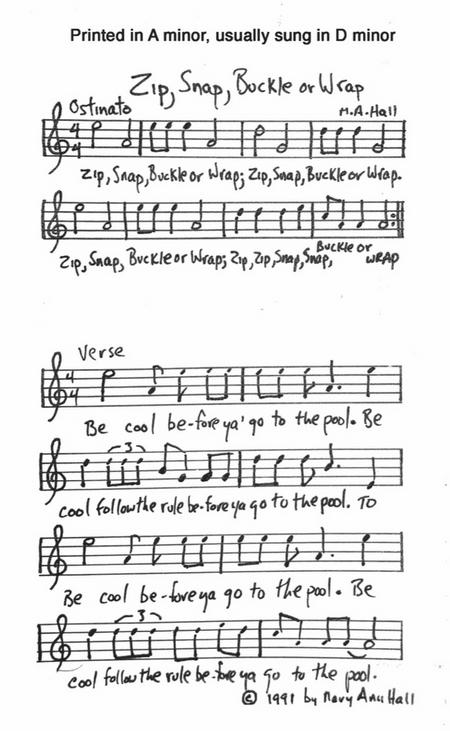 Printed in A minor, usually sung in D minor
Zip, Snap, Buckle or Wrap
Ostinato
M.A.Hall
4
4
Zip, Snap, Buckle or Wrap; Zip, Snap, Buckle or Wrap.
Zip, Snap, Buckle or Wrap; Zip, Zip, Snap, Snap, Buckle or WRAP
Verse
4
4
Be cool be-fore ya' go to the pool. Be
3
cool follow the rule be-fore ya go to the pool. To
Be cool be-fore ya go to the pool. Be
3
cool follow the rule be-fore ya go to the pool.
© 1991 by Mary Ann Hall